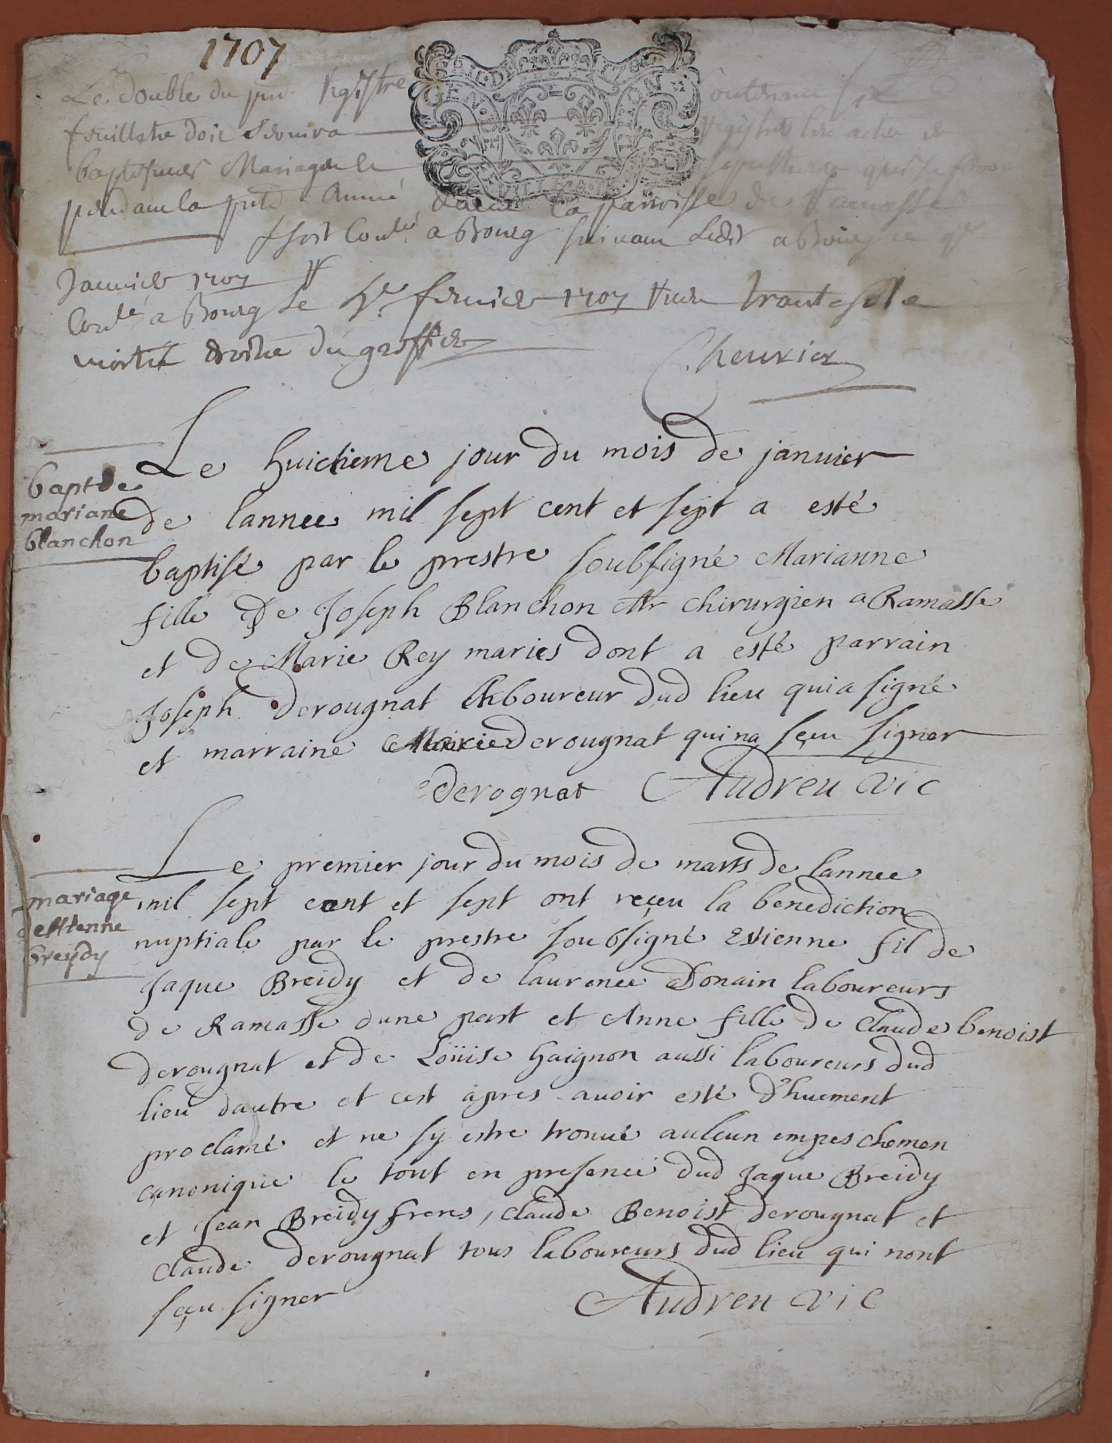 1707
Le double du pnt Registre contenant six
feuillets doit servira Registrer les actes de
baptesmes Mariages et sepultures qui se feront
pendant la pnte Année dans la parroisse de Ramasse
a Bourg suivant a Bourg ce
Janvier 1707
Conlé a Bourg le fevrier 1707 Recu trante sols
droits du greffier
Cheurier
bapt de
mariane
blanchon
Le huictieme jour du mois de janvier
de lannee mil sept cent et sept a esté
baptisé par le prestre soubsigné Marianne
fille De Joseph Blanchon Mr chirurgien a Ramasse
et de Marie Rey maries dont a esté parrain
Joseph derougnat laboureur dud lieu qui a signé
et marraine Marie derougnat qui na sçeu signer
derognat Audreu vic
mariage
detienne
breydy
Le premier jour du mois de marts de lannee
mil sept cent et sept ont reçeu la benediction
nuptiale par le prestre soubsigné Estienne fil de
Jaque Breidy et de laurence Donain laboureurs
de Ramasse dune part et Anne fille de Claude benoist
derougnat et de Loüise haignon aussi laboureurs dud
lieu dautre et cest apres auoir esté d'huement
proclamé et ne sy estre trouué aulcun empeschemen
canonique le tout en presence dud Jaque Breidy
et Jean Breidy freres, claude Benoist derougnat et
claude derougnat tous laboureurs dud lieu qui nont
sçeu signer Audreu vic